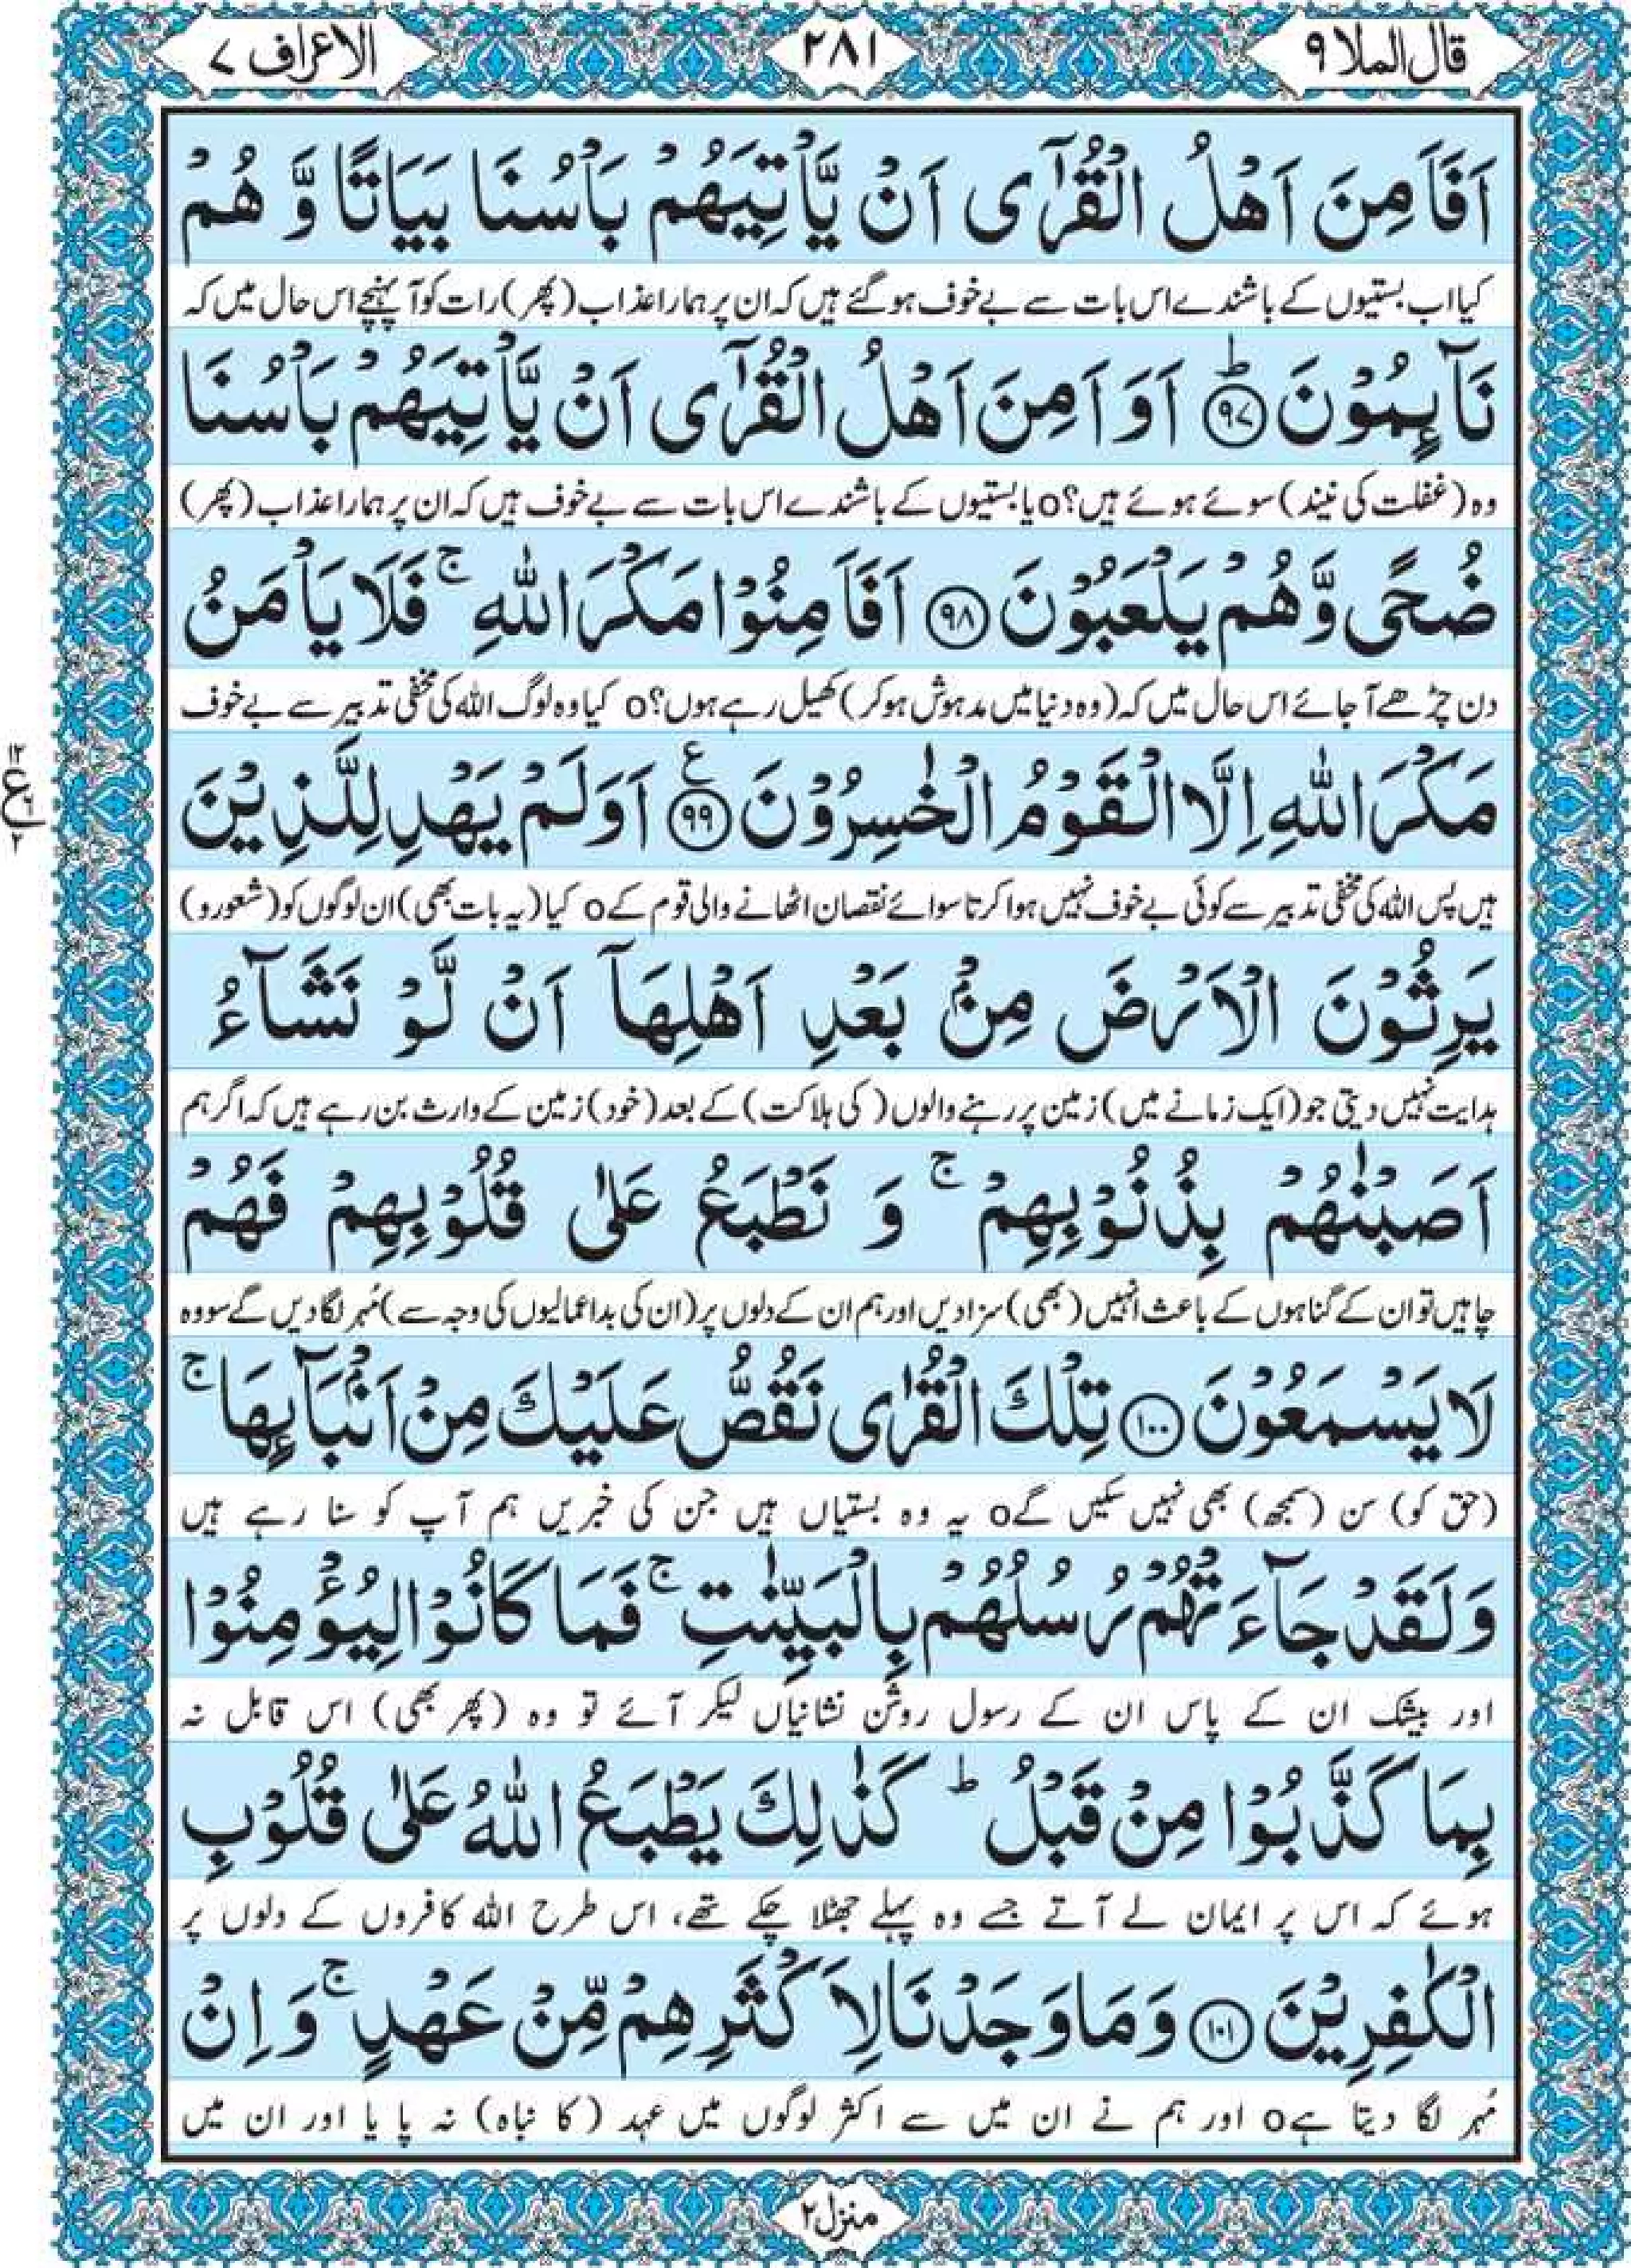 قال الملا ٩
٢٨١
الاعراف ٧
اَفَاَمِنَ اَهْلُ الْقُرٰۤى اَنْ يَّاْتِيَهُمْ بَاْسُنَا بَيَاتًا وَّ هُمْ
کیا اب بستیوں کے باشندے اس بات سے بے خوف ہو گئے ہیں کہ ان پر ہمارا عذاب (پھر) رات کو آ پہنچے اس حال میں کہ
نَآىِٕمُوْنَ ؕ۝۹۷ اَوَ اَمِنَ اَهْلُ الْقُرٰۤى اَنْ يَّاْتِيَهُمْ بَاْسُنَا
وہ (غفلت کی نیند) سوئے ہوئے ہیں؟o یا بستیوں کے باشندے اس بات سے بے خوف ہیں کہ ان پر ہمارا عذاب (پھر)
ضُحًى وَّ هُمْ يَلْعَبُوْنَ ۝۹۸ اَفَاَمِنُوْا مَكْرَ اللّٰهِ ۚ فَلَا يَاْمَنُ
دن چڑھے آ جائے اس حال میں کہ (وہ دنیا میں مدہوش ہو کر) کھیل رہے ہوں؟o کیا وہ لوگ اللہ کی مخفی تدبیر سے بے خوف
مَكْرَ اللّٰهِ اِلَّا الْقَوْمُ الْخٰسِرُوْنَ ۝۹۹ ع اَوَ لَمْ يَهْدِ لِلَّذِيْنَ
١٢
ع
٢
ہیں پس اللہ کی مخفی تدبیر سے کوئی بے خوف نہیں ہوا کرتا سوائے نقصان اٹھانے والی قوم کےo کیا (یہ بات بھی) ان لوگوں کو (شعور و)
يَرِثُوْنَ الْاَرْضَ مِنْۢ بَعْدِ اَهْلِهَاۤ اَنْ لَّوْ نَشَآءُ
ہدایت نہیں دیتی جو (ایک زمانے میں) زمین پر رہنے والوں (کی ہلاکت) کے بعد (خود) زمین کے وارث بن رہے ہیں کہ اگر ہم
اَصَبْنٰهُمْ بِذُنُوْبِهِمْ ۚ وَ نَطْبَعُ عَلٰى قُلُوْبِهِمْ فَهُمْ
چاہیں تو ان کے گناہوں کے باعث انہیں (بھی) سزا دیں اور ہم ان کے دلوں پر (ان کی بداعمالیوں کی وجہ سے) مُہر لگا دیں گے سو وہ
لَا يَسْمَعُوْنَ ۝۱۰۰ تِلْكَ الْقُرٰى نَقُصُّ عَلَيْكَ مِنْ اَنْۢبَآىِٕهَا ۚ
(حق کو) سن (سمجھ) بھی نہیں سکیں گےo یہ وہ بستیاں ہیں جن کی خبریں ہم آپ کو سنا رہے ہیں
وَ لَقَدْ جَآءَتْهُمْ رُسُلُهُمْ بِالْبَيِّنٰتِ ۚ فَمَا كَانُوْا لِيُؤْمِنُوْا
اور بیشک ان کے پاس ان کے رسول روشن نشانیاں لیکر آئے تو وہ (پھر بھی) اس قابل نہ
بِمَا كَذَّبُوْا مِنْ قَبْلُ ؕ كَذٰلِكَ يَطْبَعُ اللّٰهُ عَلٰى قُلُوْبِ
ہوئے کہ اس پر ایمان لے آتے جسے وہ پہلے جھٹلا چکے تھے، اس طرح اللہ کافروں کے دلوں پر
الْكٰفِرِيْنَ ۝۱۰۱ وَ مَا وَجَدْنَا لِاَكْثَرِهِمْ مِّنْ عَهْدٍ ۚ وَ اِنْ
مُہر لگا دیتا ہےo اور ہم نے ان میں سے اکثر لوگوں میں عہد (کا نباہ) نہ پایا اور ان میں
منزل ٢